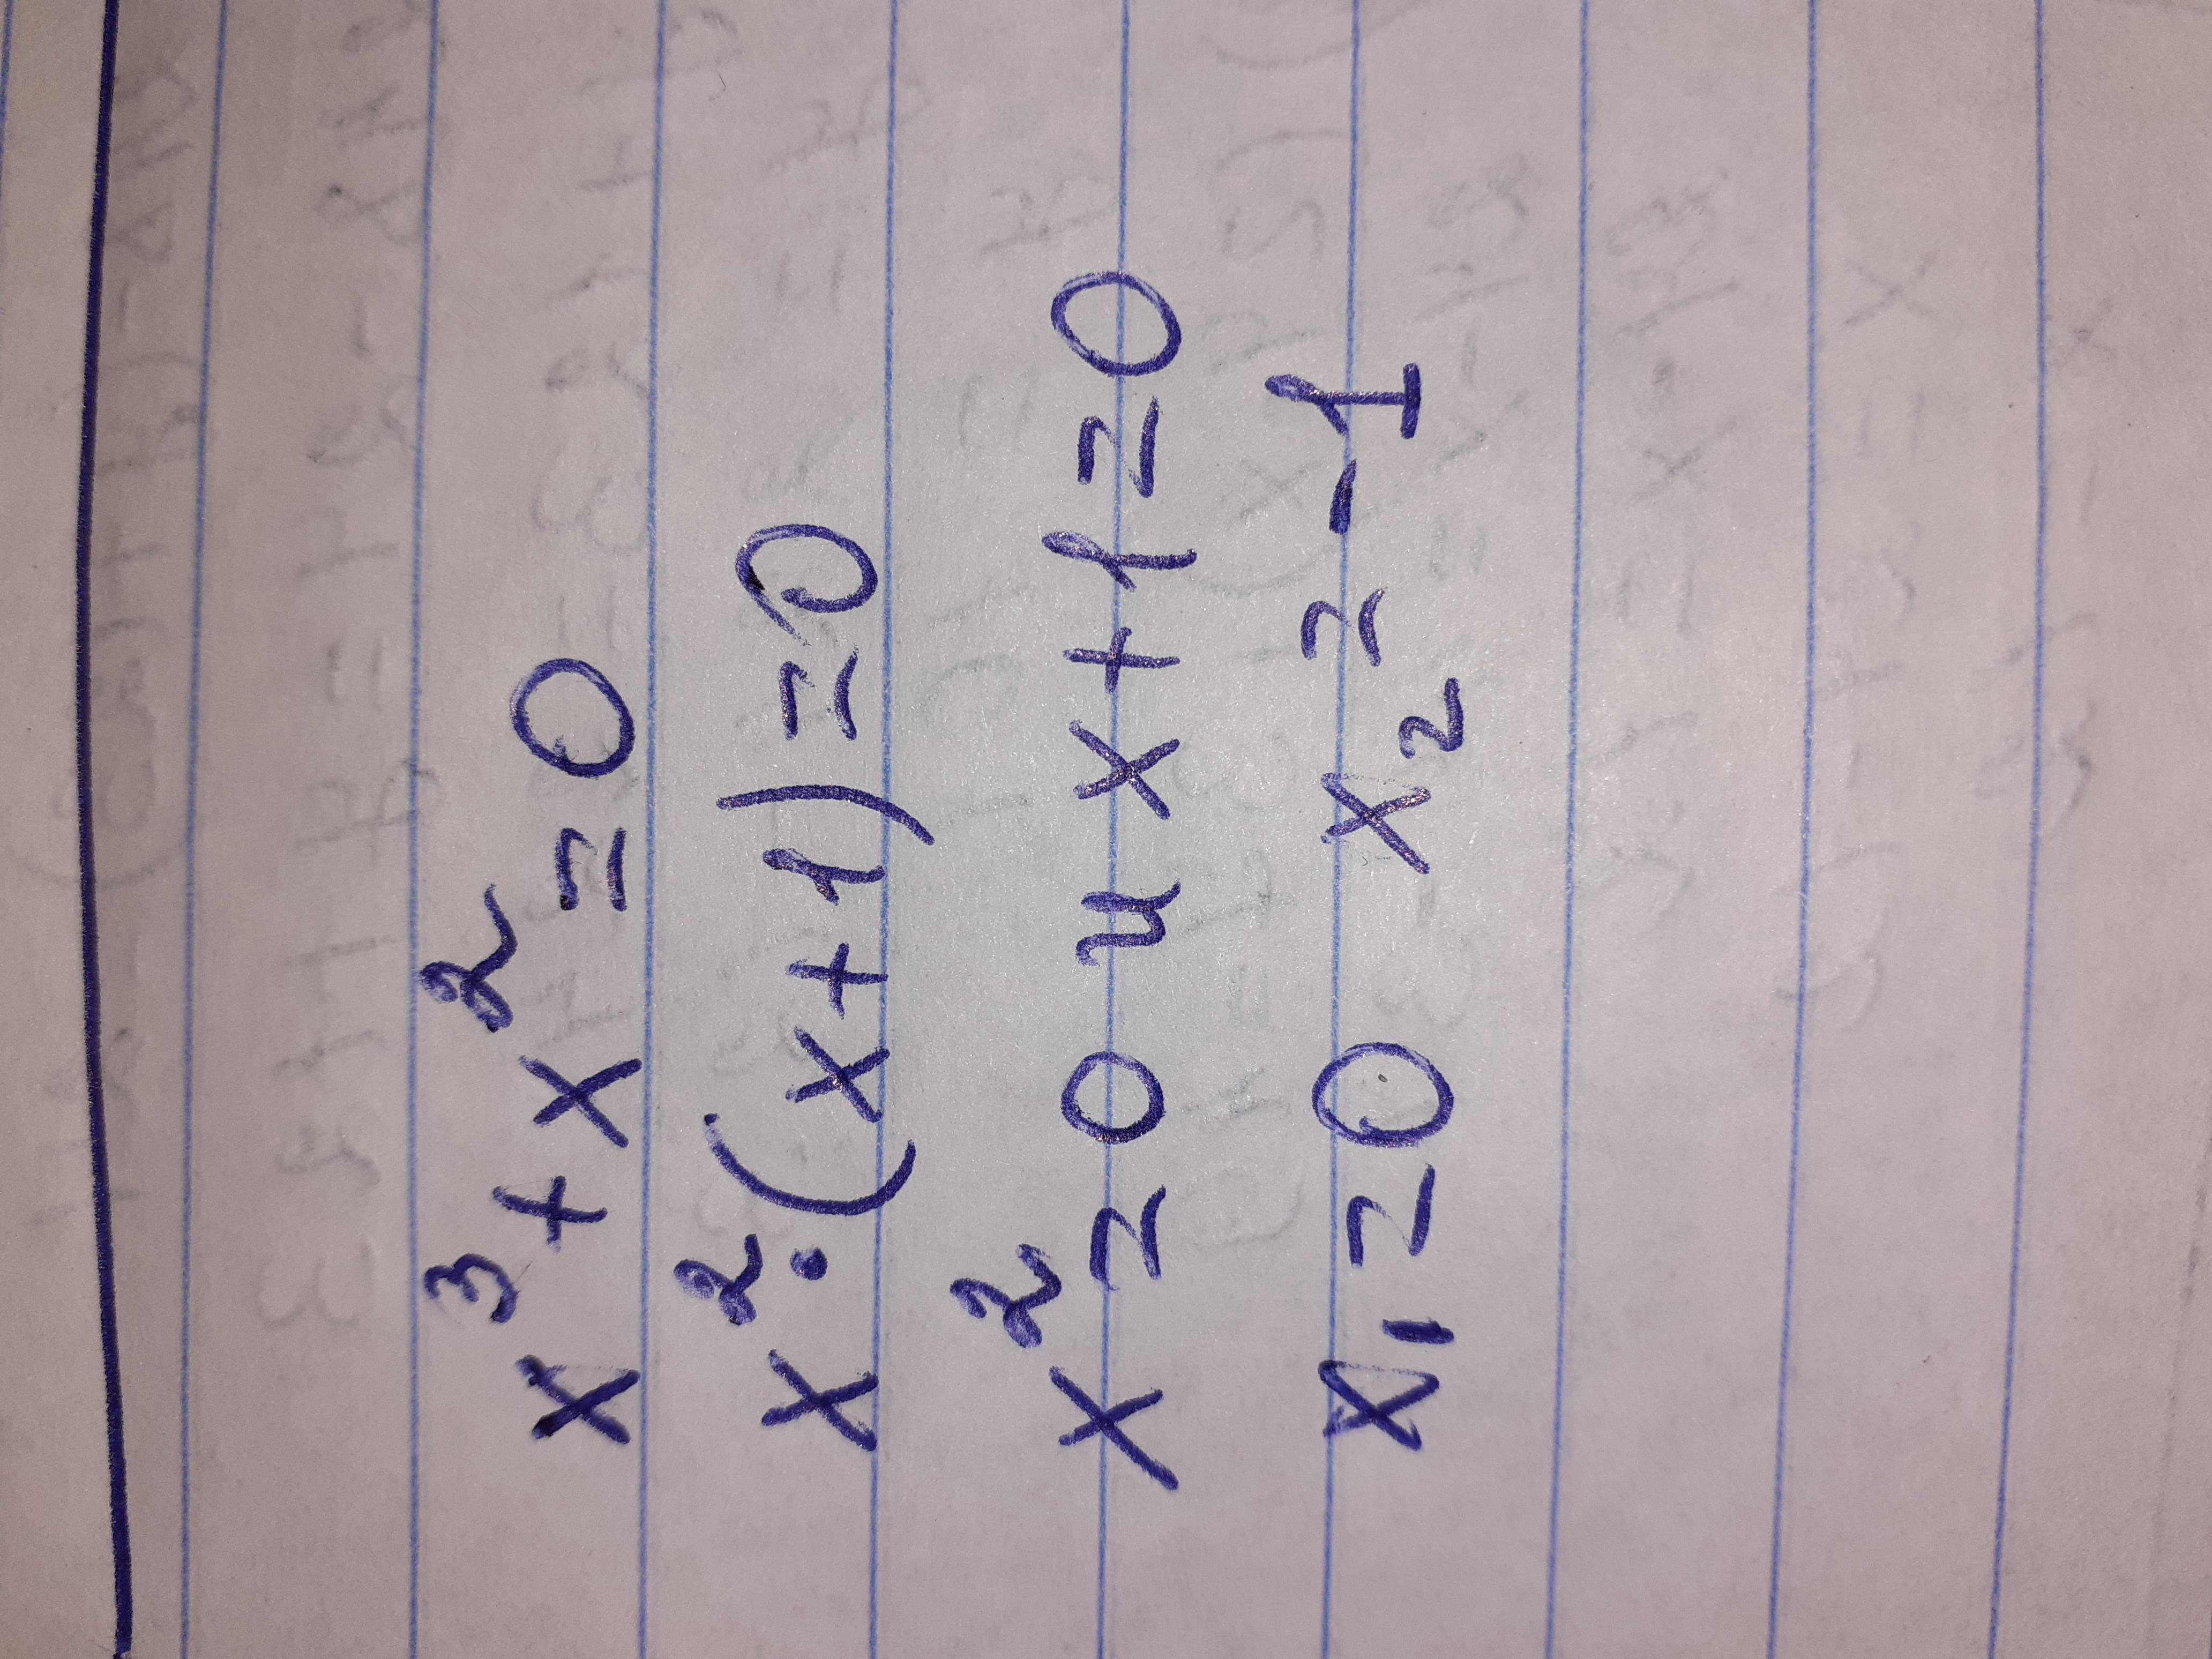 x³ + x² = 0
x² · (x + 1) = 0
x² = 0 и x + 1 = 0
x₁ = 0 x₂ = -1